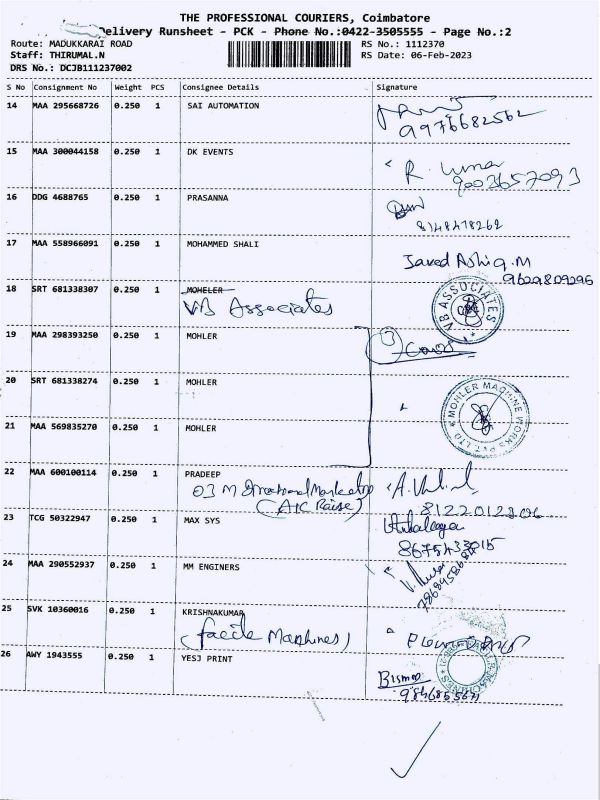 THE PROFESSIONAL COURIERS, Coimbatore
Delivery Runsheet - PCK - Phone No.:0422-3505555 - Page No.:2
Route: MADUKKARAI ROAD RS No.: 1112370
Staff: THIRUMAL.N RS Date: 06-Feb-2023
DRS No.: DCJB111237002
S No Consignment No Weight PCS Consignee Details Signature
14 MAA 295668726 0.250 1 SAI AUTOMATION
9976682562
15 MAA 300044158 0.250 1 DK EVENTS R. Kumar
9003657093
16 DDG 4688765 0.250 1 PRASANNA
8148478262
17 MAA 558966091 0.250 1 MOHAMMED SHALI Javed Ashiq.M
9629809296
18 SRT 681338307 0.250 1 MOHELER
VB Associates VB ASSOCIATES CBE
19 MAA 298393250 0.250 1 MOHLER 3 Cover
20 SRT 681338274 0.250 1 MOHLER
MOHLER MACHINE WORKS PVT LTD
21 MAA 569835270 0.250 1 MOHLER
22 MAA 600100114 0.250 1 PRADEEP
(A1C Raise) 8122012806
23 TCG 50322947 0.250 1 MAX SYS
8675433015
24 MAA 290552937 0.250 1 MM ENGINERS
25 SVK 10360016 0.250 1 KRISHNAKUMAR
(facile Machines)
26 AWY 1943555 0.250 1 YESJ PRINT